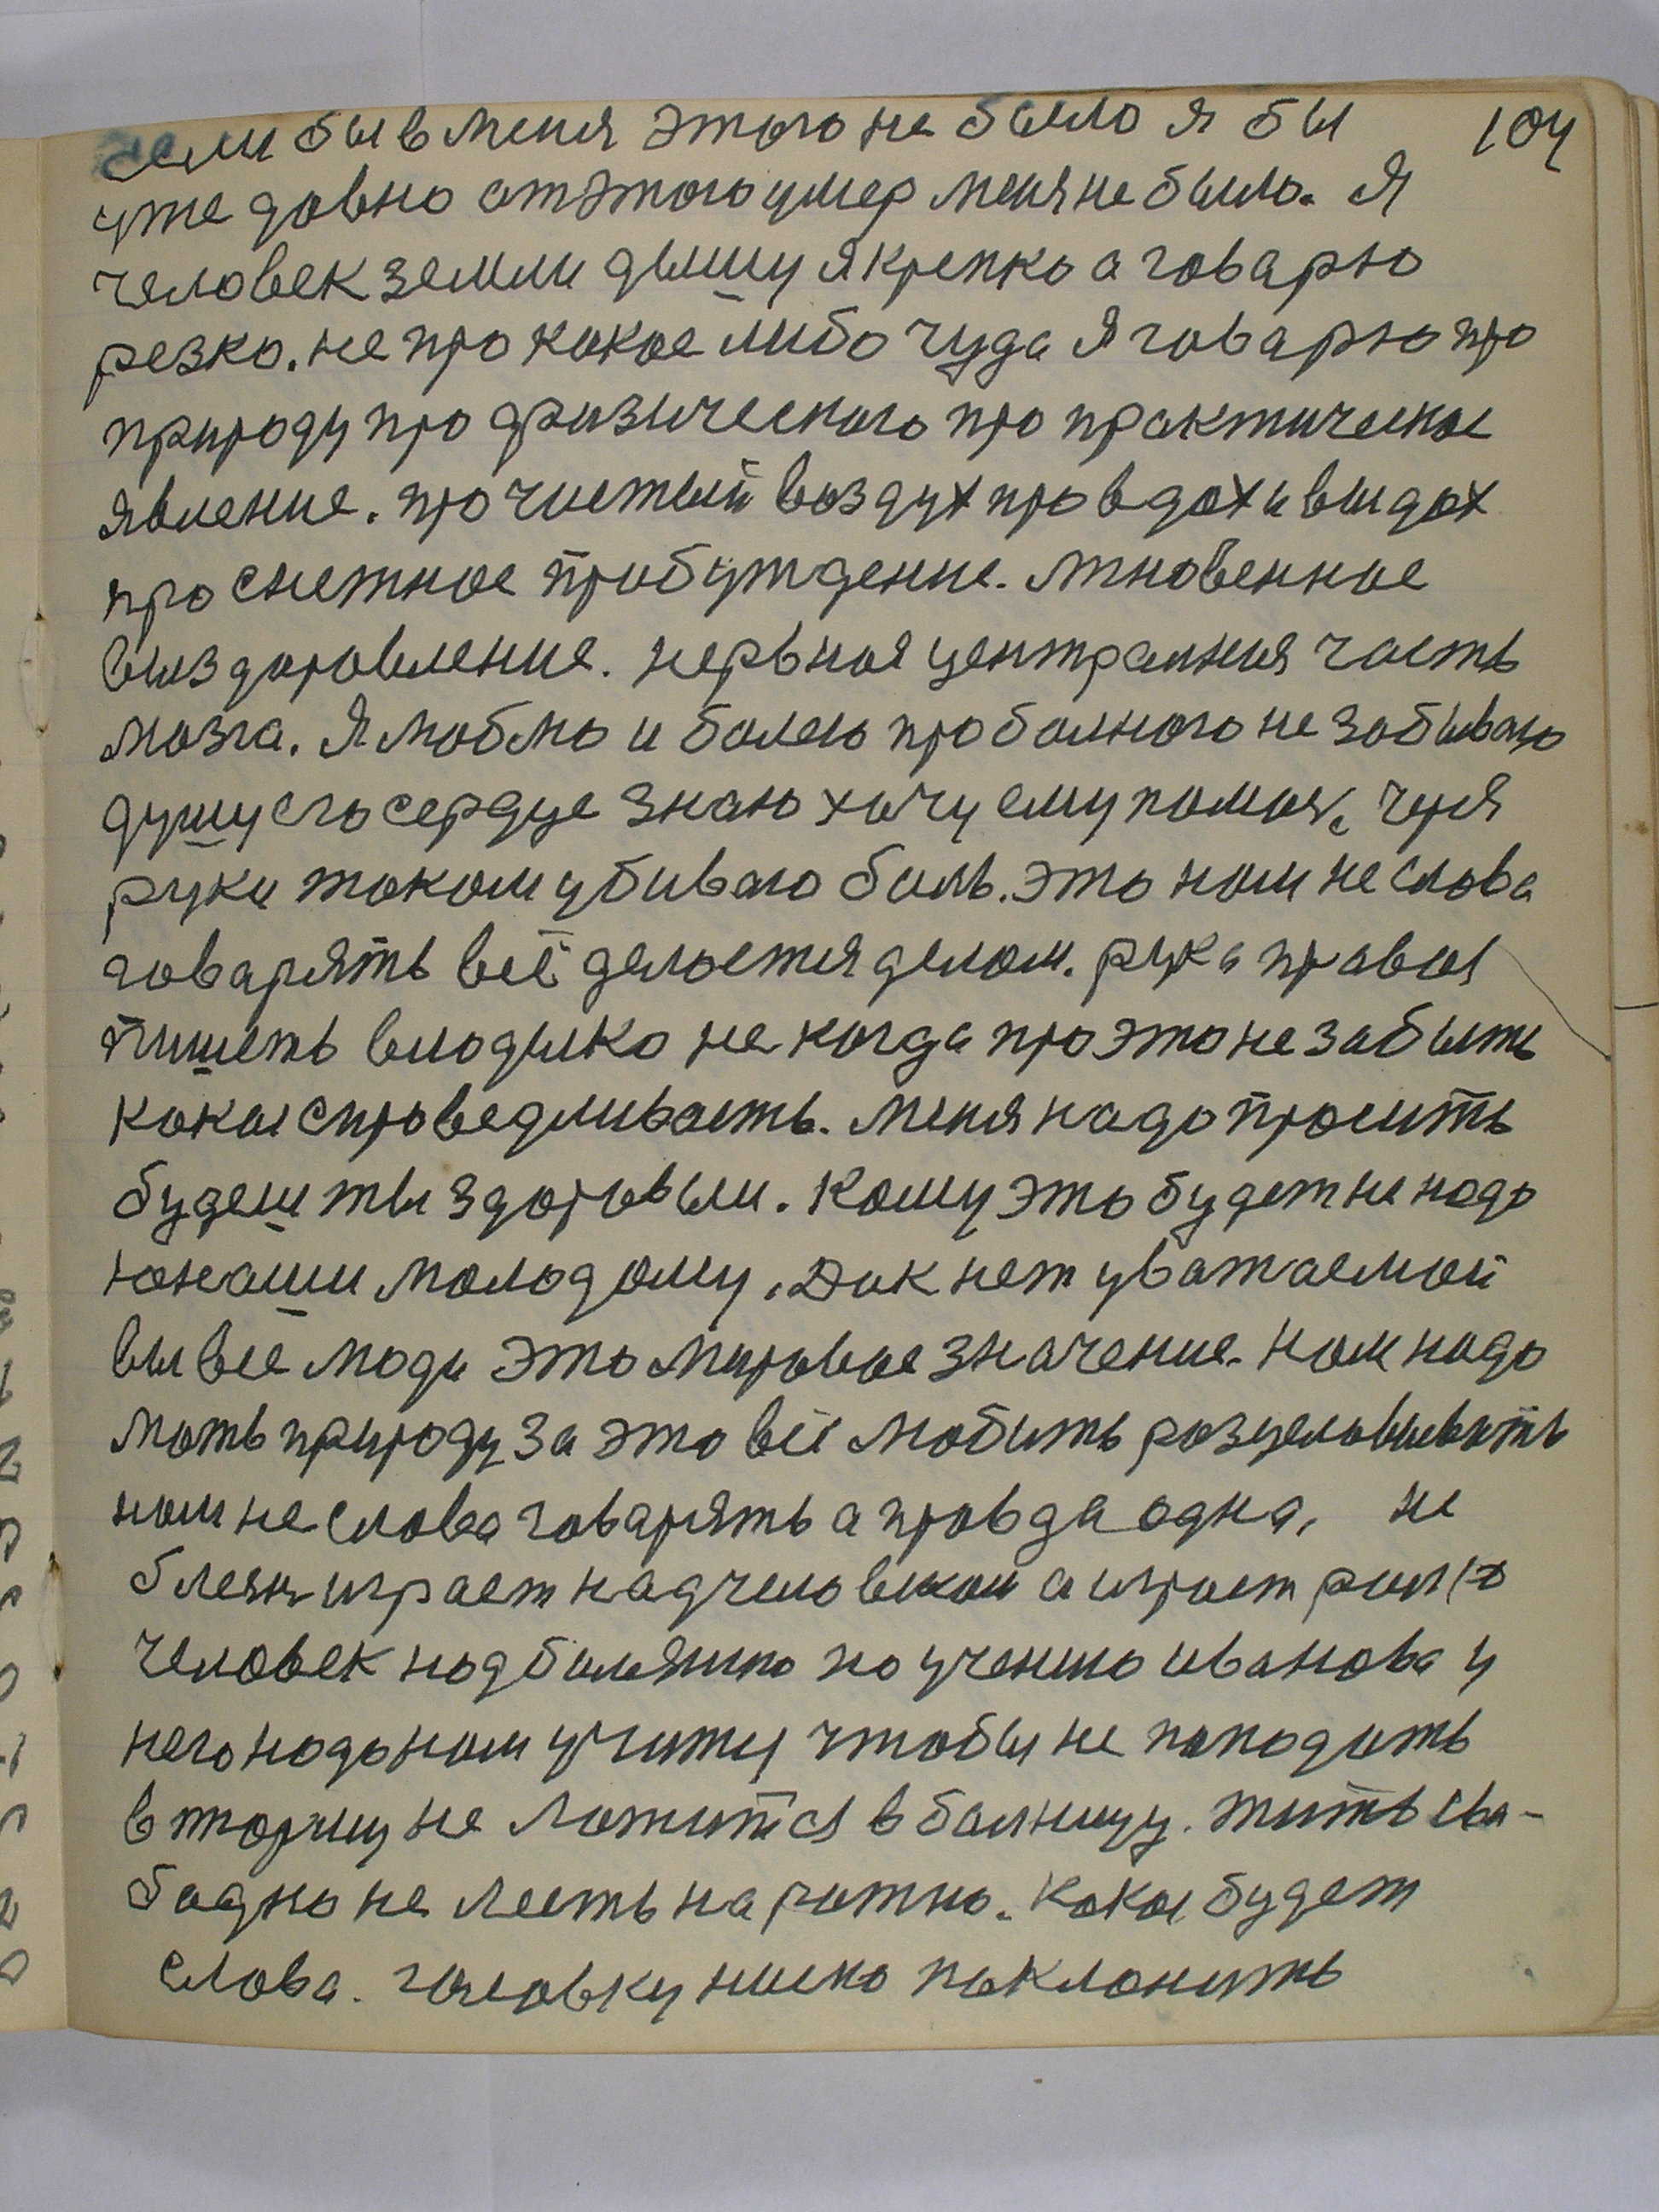 если бы в меня этого не было я бы 104
уже давно от этого умер меня не было. Я
человек земли дышу я крепко а говарю
резко. не про какое либо чуда я говарю про
природу про физического про практическое
явление. про чистый воздух про вдох и выдох
про снежное пробуждение. мгновенное
выздоровление. нервная централния часть
мозга. Я люблю и болею про болного не забываю
душу его сердце знаю хочу ему помоч. чрез
руки током убиваю боль. это нам не слова
говарять всё делается делом. рука правая
пишеть владыко не когда про это не забыть
какая справедливасть. меня надо просить
будеш ты здоровым. Кому это будет не надо
юнаши молодому. Дак нет уважаемаи
вы все люди это мировое значение. нам надо
мать природу за это всё любить розцеловывать
нам не слова говарять а правда одна, не
блезн играет над человекам а играет ролю
человек над болезнию по учению иванова у
него надо нам учитц чтобы не попадать
в тюрму не ложитса в болницу. жить сва-
бодно не лесть на рожно. какая будет
слова. головку ниско поклонить